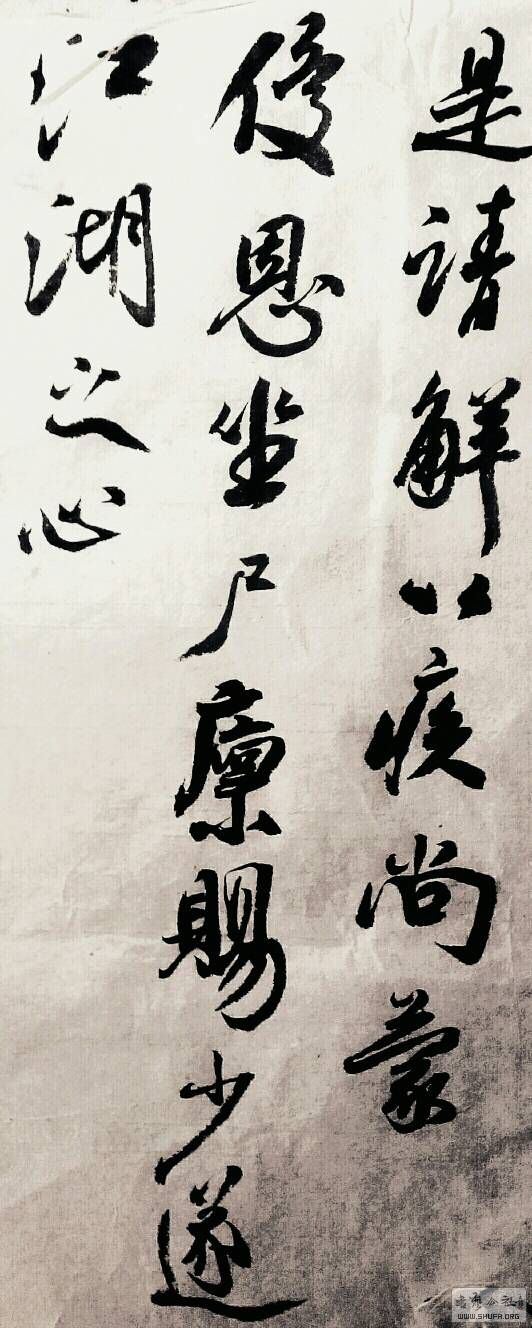 是請解以疾尚蒙
優恩坐尸廩賜少遂
江湖之心
WWW.SHUFA.ORG